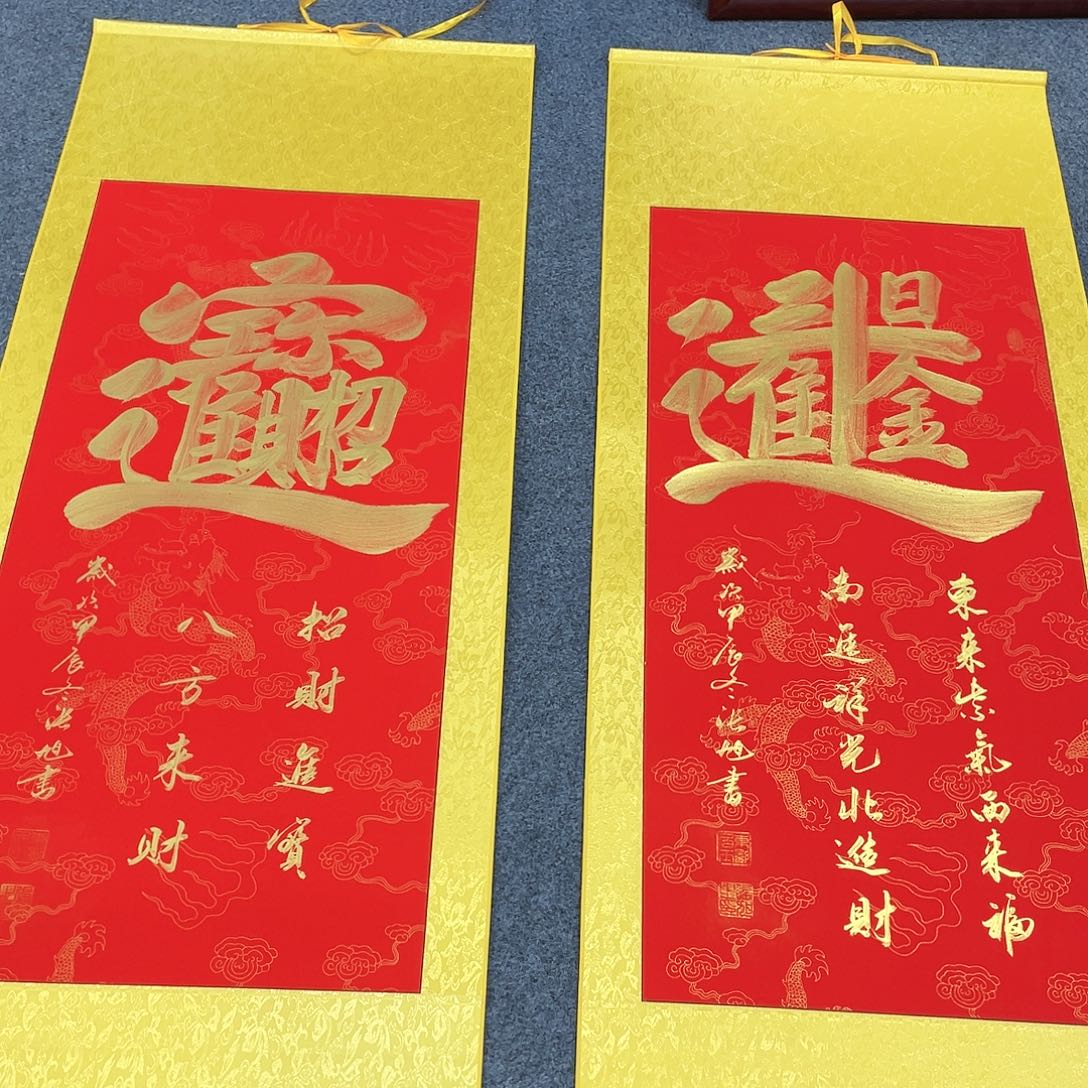 招財進寶
招財進寶
八方来財
歲次甲辰冬旭書
日進斗金
東来紫氣西来福
南進祥光北進財
歲次甲辰冬旭書